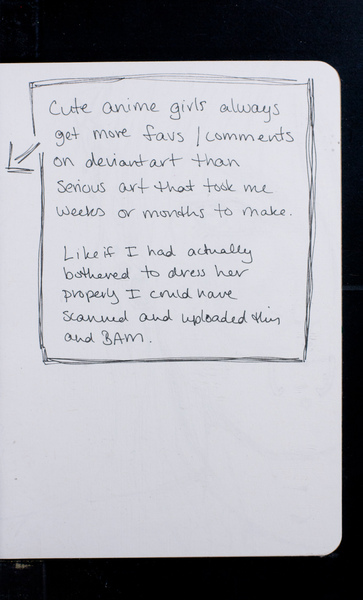 Cute anime girls always
get more favs / comments
on deviantart than
serious art that took me
weeks or months to make.
Like if I had actually
bothered to dress her
properly I could have
scanned and uploaded this
and BAM.